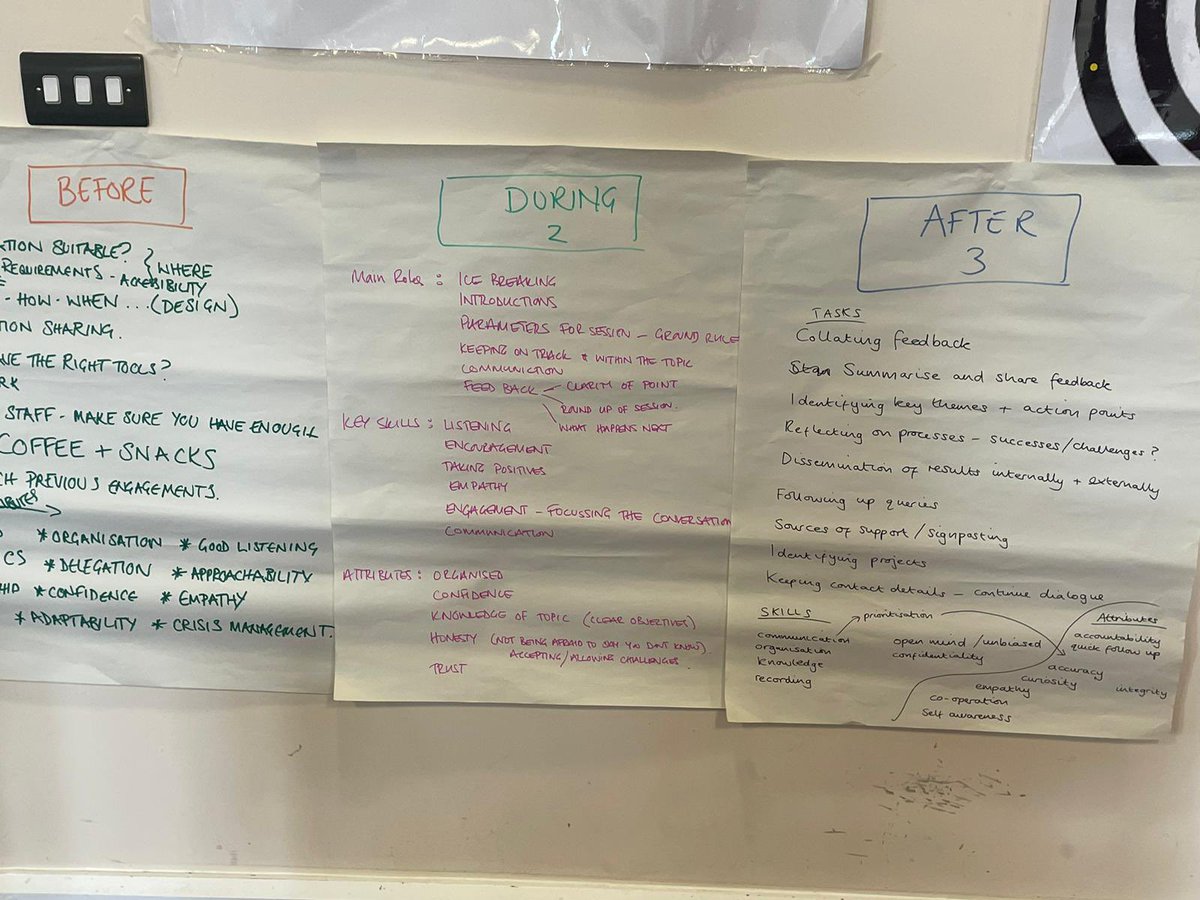 BEFORE
SUITABLE?
REQUIREMENTS - ACCESSIBILITY
WHERE
- HOW - WHEN ... (DESIGN)
SHARING.
THE RIGHT TOOLS?
STAFF - MAKE SURE YOU HAVE ENOUGH
COFFEE + SNACKS
PREVIOUS ENGAGEMENTS.
* ORGANISATION * GOOD LISTENING
CS * DELEGATION * APPROACHABILITY
* CONFIDENCE * EMPATHY
* ADAPTABILITY * CRISIS MANAGEMENT.
DURING
2
Main Roles : ICE BREAKING
INTRODUCTIONS
PARAMETERS FOR SESSION - GROUND RULE
KEEPING ON TRACK & WITHIN THE TOPIC
COMMUNICTION
FEED BACK - CLARITY OF POINT
ROUND UP OF SESSION.
WHAT HAPPENS NEXT
KEY SKILLS : LISTENING
ENCOURAGEMENT
TAKING POSITIVES
EMPATHY
ENGAGEMENT - FOCUSSING THE CONVERSATION
COMMUNICATION
ATTRIBUTES : ORGANISED
CONFIDENCE
KNOWLEDGE OF TOPIC (CLEAR OBJECTIVES)
HONESTY (NOT BEING AFRAID TO SAY YOU DONT KNOW).
ACCEPTING/ALLOWING CHALLENGES.
TRUST
AFTER
3
TASKS
Collating feedback
Summarise and share feedback
Identifying key themes + action points
Reflecting on processes - successes/challenges?
Dissemination of results internally + externally
Following up queries
Sources of support / signposting
Identifying projects
Keeping contact details - continue dialogue
SKILLS
prioritisation
communication
organisation
knowledge
recording
open mind / unbiased
confidentiality
Attributes
accountability
quick follow up
accuracy
curiosity
integrity
empathy
co-operation
Self awareness